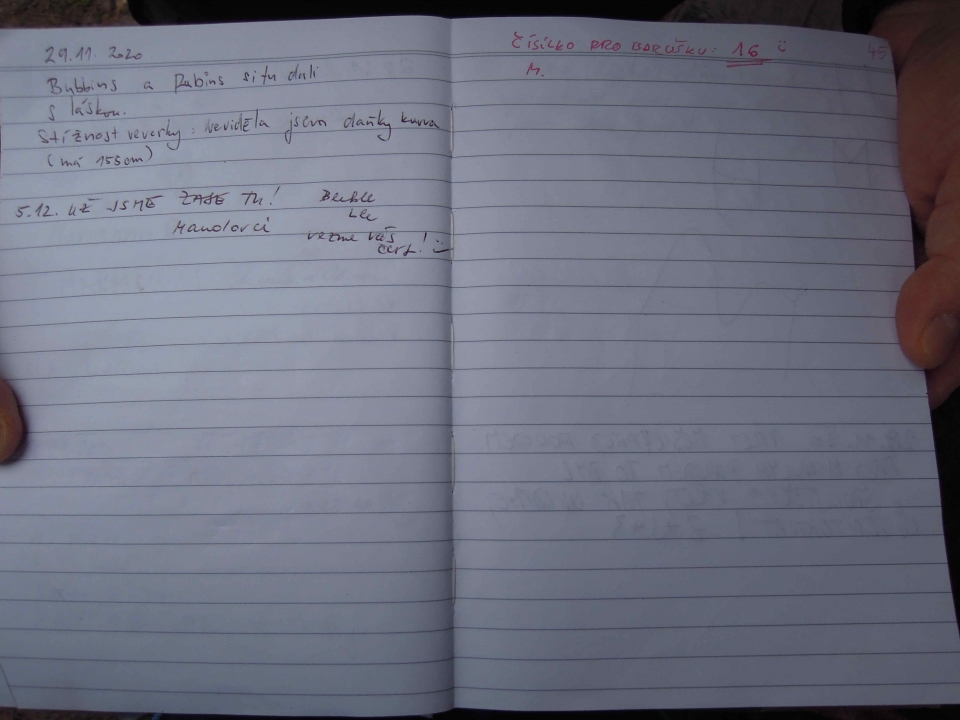 29.11. 2020
Bubbins a Rubins si tu dali
s láskou.
Stížnost veverky: neviděla jsem daňky kurva
(má 155cm)
5.12. UŽ JSME ZASE TU!
Manolovci
Blehle
Lee
vezme vás
čert!
ČÍSÍLKO PRO BARUŠKU: 16
M.
45